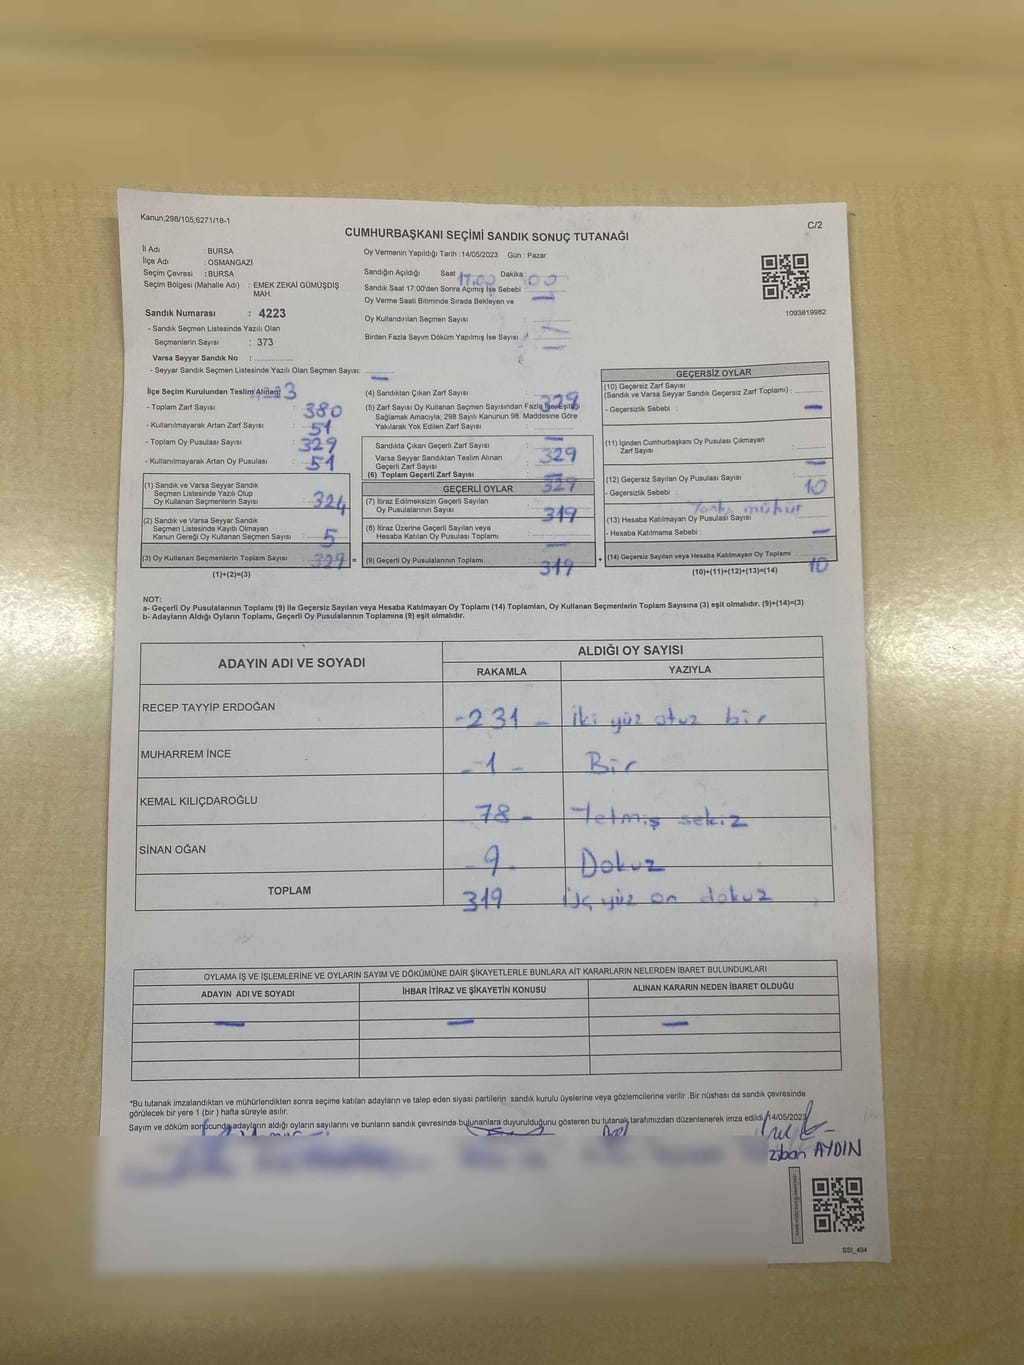 Kanun;298/105,6271/18-1
C/2
CUMHURBAŞKANI SEÇİMİ SANDIK SONUÇ TUTANAĞI
İl Adı : BURSA
İlçe Adı : OSMANGAZİ
Seçim Çevresi : BURSA
Seçim Bölgesi (Mahalle Adı) : EMEK ZEKAİ GÜMÜŞDİŞ
MAH.
Sandık Numarası : 4223
- Sandık Seçmen Listesinde Yazılı Olan
Seçmenlerin Sayısı : 373
Varsa Seyyar Sandık No :
- Seyyar Sandık Seçmen Listesinde Yazılı Olan Seçmen Sayısı:
Oy Vermenin Yapıldığı Tarih :14/05/2023 Gün : Pazar
Sandığın Açıldığı Saat 17.00 Dakika: 00
Sandık Saat 17:00'den Sonra Açımış İse Sebebi :
Oy Verme Saati Bitiminde Sırada Bekleyen ve
Oy Kullandırılan Seçmen Sayısı
Birden Fazla Sayım Döküm Yapılmış İse Sayısı
1093819982
İlçe Seçim Kurulundan Teslim Alınan:
- Toplam Zarf Sayısı : 380
- Kullanılmayarak Artan Zarf Sayısı : 51
- Toplam Oy Pusulası Sayısı : 329
- Kullanılmayarak Artan Oy Pusulası : 51
(1) Sandık ve Varsa Seyyar Sandık
Seçmen Listesinde Yazılı Olup
Oy Kullanan Seçmenlerin Sayısı : 324
(2) Sandık ve Varsa Seyyar Sandık
Seçmen Listesinde Kayıtlı Olmayan
Kanun Gereği Oy Kullanan Seçmen Sayısı : 5
(3) Oy Kullanan Seçmenlerin Toplam Sayısı : 329
(1)+(2)=(3)
(4) Sandıktan Çıkan Zarf Sayısı : 329
(5) Zarf Sayısı Oy Kullanan Seçmen Sayısından Fazla İse, Eşitliği
Sağlamak Amacıyla, 298 Sayılı Kanunun 98. Maddesine Göre
Yakılarak Yok Edilen Zarf Sayısı :
Sandıkta Çıkan Geçerli Zarf Sayısı : 329
Varsa Seyyar Sandıktan Teslim Alınan
Geçerli Zarf Sayısı
(6) Toplam Geçerli Zarf Sayısı : 329
GEÇERLİ OYLAR
(7) İtiraz Edilmeksizin Geçerli Sayılan
Oy Pusulasının Sayısı : 319
(8) İtiraz Üzerine Geçerli Sayılan veya
Hesaba Katılan Oy Pusulası Toplamı
= (9) Geçerli Oy Pusulalarının Toplamı : 319 +
GEÇERSİZ OYLAR
(10) Geçersiz Zarf Sayısı
(Sandık ve Varsa Seyyar Sandık Geçersiz Zarf Toplamı) :
- Geçersizlik Sebebi :
(11) İçinden Cumhurbaşkanı Oy Pusulası Çıkmayan
Zarf Sayısı
(12) Geçersiz Sayılan Oy Pusulası Sayısı : 10
- Geçersizlik Sebebi : mühür
(13) Hesaba Katılmayan Oy Pusulası Sayısı
- Hesaba Katılmama Sebebi :
(14) Geçersiz Sayılan veya Hesaba Katılmayan Oy Toplamı 10
(10)+(11)+(12)+(13)=(14)
NOT:
a- Geçerli Oy Pusulalarının Toplamı (9) ile Geçersiz Sayılan veya Hesaba Katılmayan Oy Toplamı (14) Toplamları, Oy Kullanan Seçmenlerin Toplam Sayısına (3) eşit olmalıdır. (9)+(14)=(3)
b- Adayların Aldığı Oyların Toplamı, Geçerli Oy Pusulalarının Toplamına (9) eşit olmalıdır.
ADAYIN ADI VE SOYADI
ALDIĞI OY SAYISI
RAKAMLA YAZIYLA
RECEP TAYYİP ERDOĞAN -231- iki yüz otuz bir
MUHARREM İNCE -1- Bir
KEMAL KILIÇDAROĞLU 78- Yetmiş sekiz
SİNAN OĞAN -9- Dokuz
TOPLAM 319 üç yüz on dokuz
OYLAMA İŞ VE İŞLEMLERİNE VE OYLARIN SAYIM VE DÖKÜMÜNE DAİR ŞİKAYETLERLE BUNLARA AİT KARARLARIN NELERDEN İBARET BULUNDUKLARI
ADAYIN ADI VE SOYADI İHBAR İTİRAZ VE ŞİKAYETİN KONUSU ALINAN KARARIN NEDEN İBARET OLDUĞU
*Bu tutanak imzalandıktan ve mühürlendikten sonra seçime katılan adayların ve talep eden siyasi partilerin sandık kurulu üyelerine veya gözlemcilerine verilir .Bir nüshası da sandık çevresinde
görülecek bir yere 1 (bir ) hafta süreyle asılır.
Sayım ve döküm sonucunda adayların aldığı oyların sayılarını ve bunların sandık çevresinde bulunanlara duyurulduğunu gösteren bu tutanak tarafımızdan düzenlenerek imza edildi. 14/05/2023
AYDIN
SSI_404